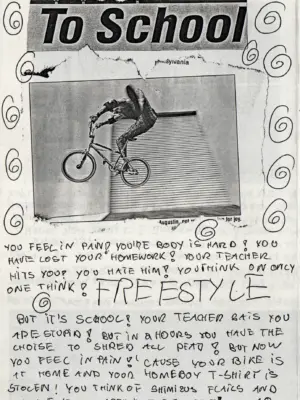 To School
sylvania
Augustin,
for joy.
YOU FEELIN PAIN? YOU'RE BODY IS HARD? YOU
HAVE LOST YOUR HOMEWORK? YOUR TEACHER
HITS YOU? YOU HATE HIM? YOU THINK ON ONLY
ONE THINK? FREESTYLE
BUT IT'S SCHOOL! YOUR TEACHER SAIS YOU
ARE STUPID! BUT IN 2 HOURS YOU HAVE THE
CHOISE TO SHRED ALL DEAD! BUT NOW
YOU FEEL IN PAIN! CAUSE YOUR BIKE IS
AT HOME AND YOUR HOMEBOY T-SHIRT IS
STOLEN! YOU THINK OF SHIMIOUS FLAIRS AND